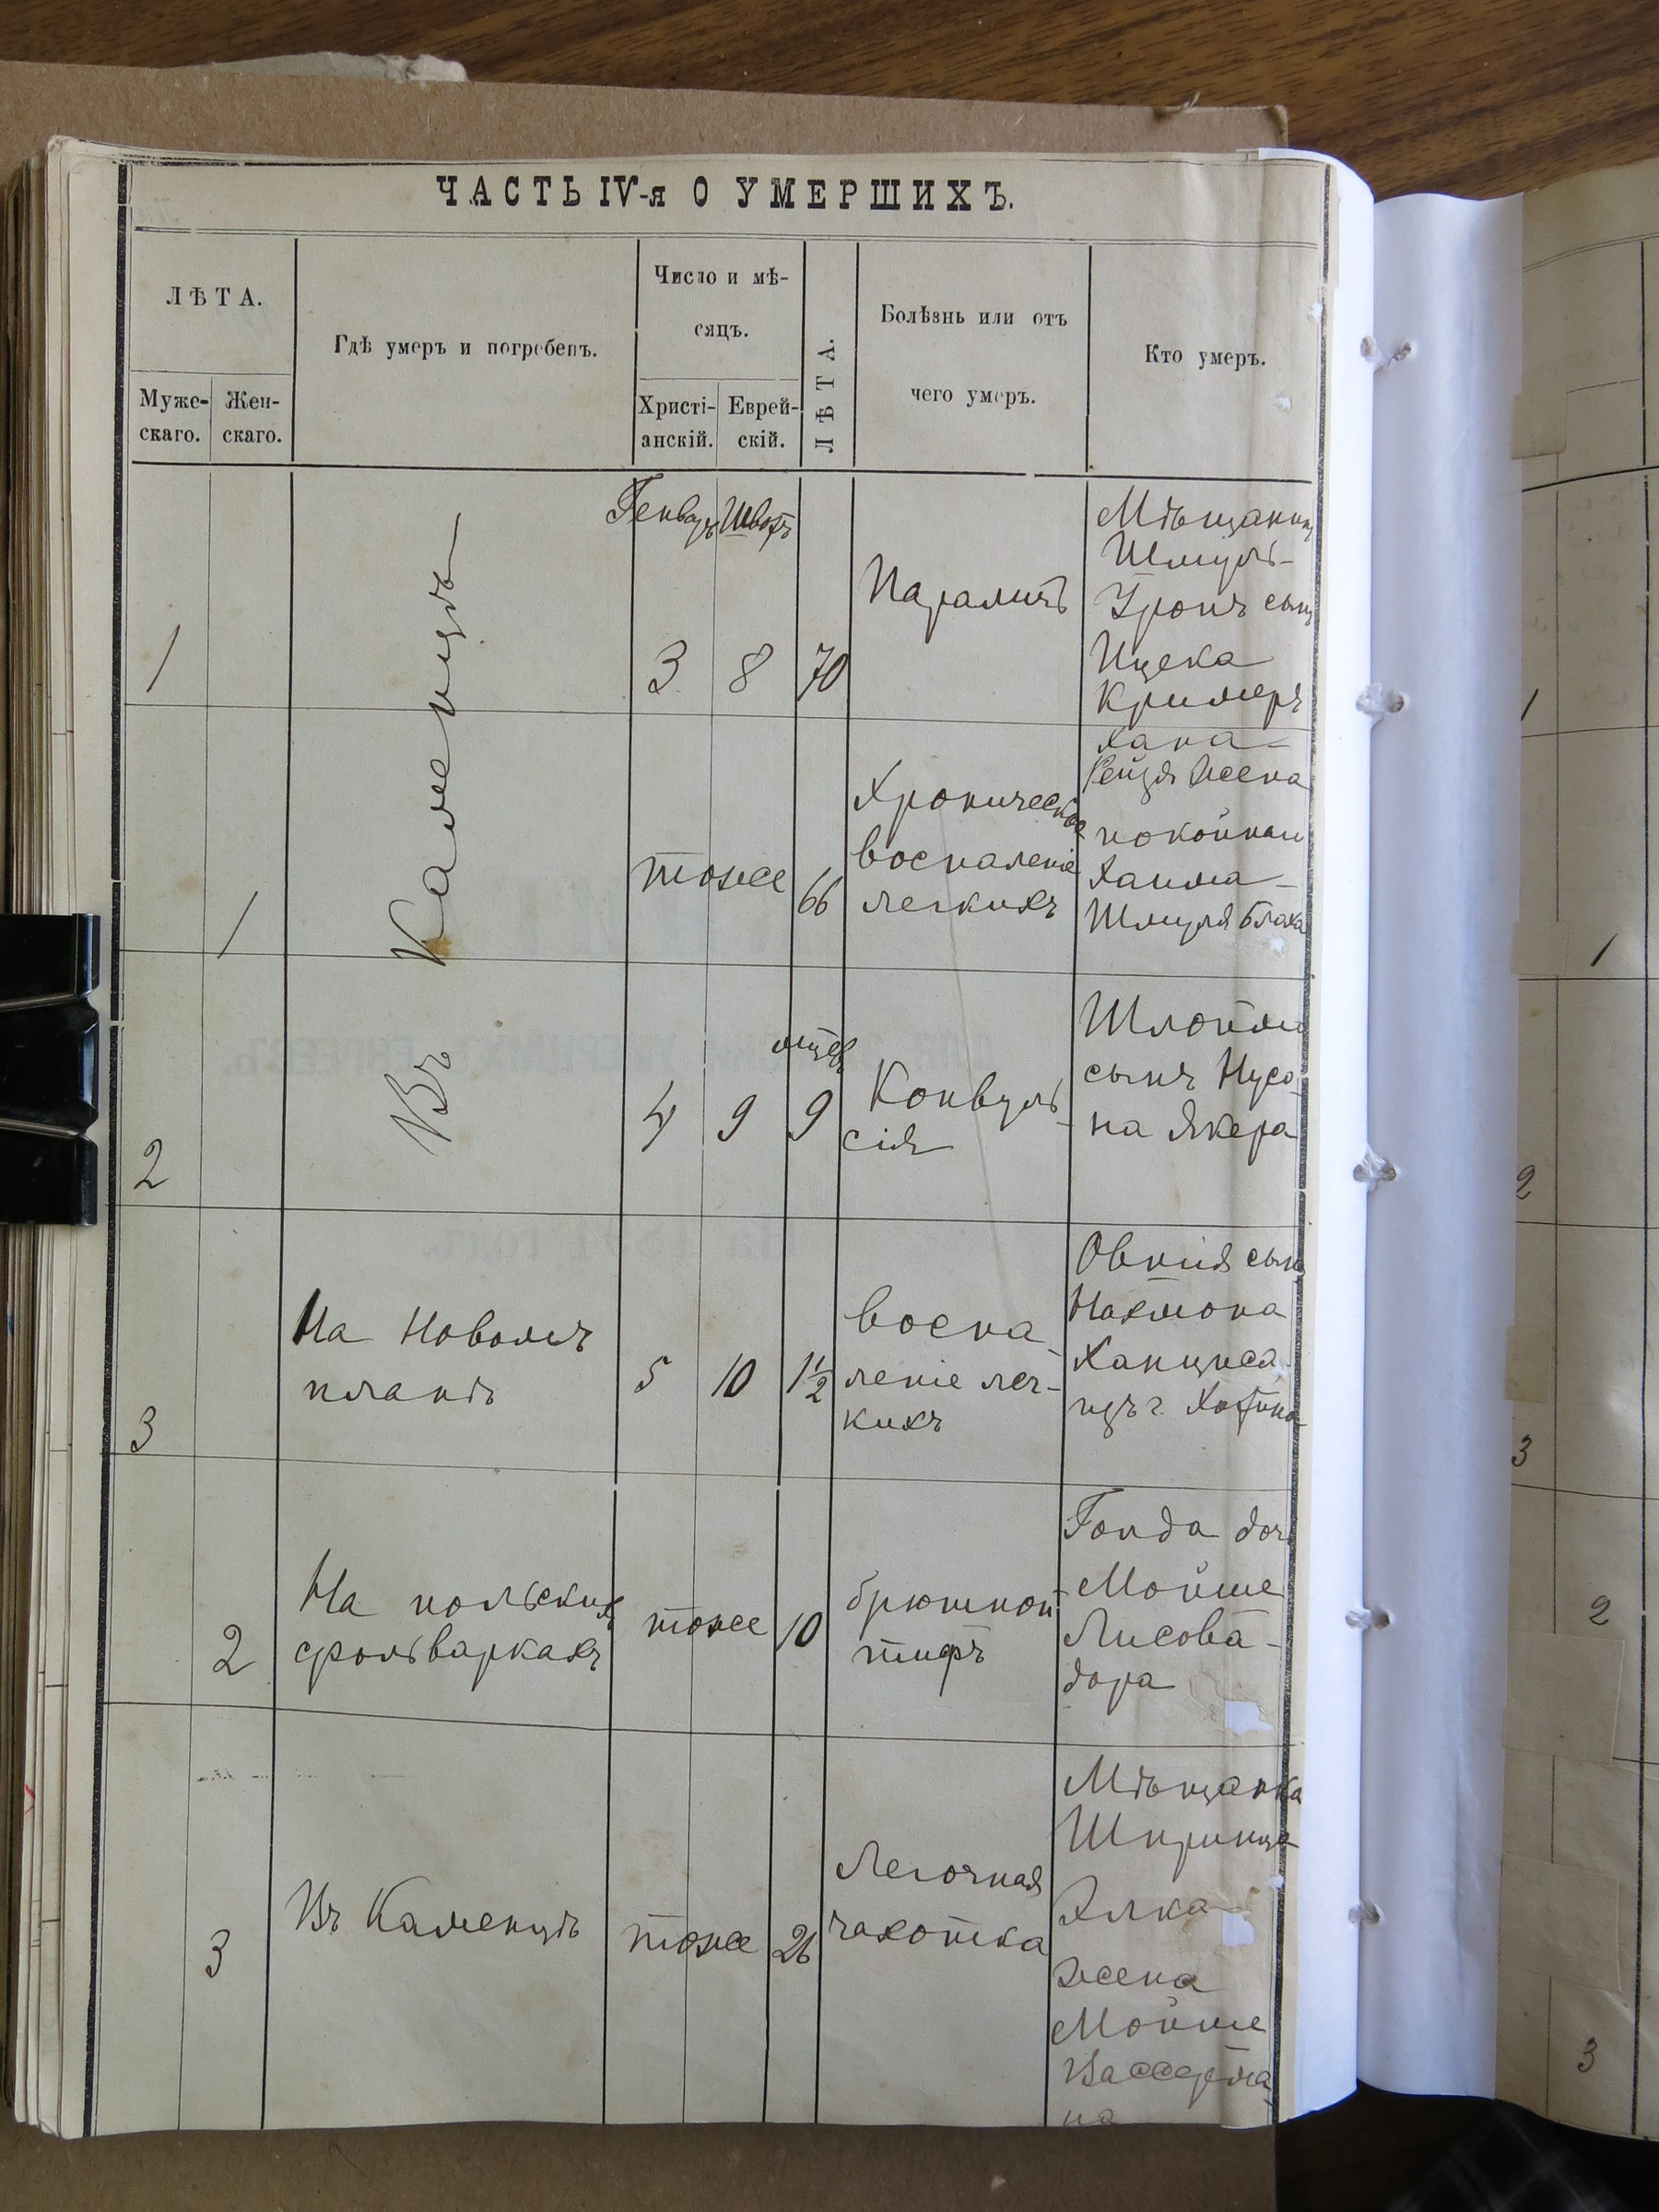 ЧАСТЬ IV-я О УМЕРШИХЪ.
ЛѢТА.
Мужс-
скаго.
Жен-
скаго.
Гдѣ умеръ и погребенъ.
Число и мѣ-
сяцъ.
Христі-
анскій.
Еврей-
скій.
ЛѢТА.
Болѣзнь или отъ
чего умеръ.
Кто умеръ.
Въ Каменцѣ
Генварь Шватъ
1
3 8 70
Параличъ
Мѣщанинъ
Шмуль-
сынъ
Ицека
Кримеръ
1
тоже 66
Хроническое
воспаленіе
легкихъ
Хана-
Рейзя жена
покойнаго
Хаима-
Шмуля Блаха
2
4 9 9
мѣсяц
Конвуль-
сія
Шлойма
сынъ Нусо-
на Якера
3
На Новомъ
планѣ
5 10 1½
воспа-
леніе лег-
кихъ
Овшія сынъ
Нахмона
изъ г. Хотина
2
На польскихъ
фольваркахъ
тоже 10
брюшной
тифъ
дочь
Мойше
Лисова-
дора
3
Въ Каменцѣ
тоже 26
Легочная
чахотка
Мѣщанка
Шпринца
Элка
жена
Мойше
Вассерма-
на
1
1
2
3
2
3